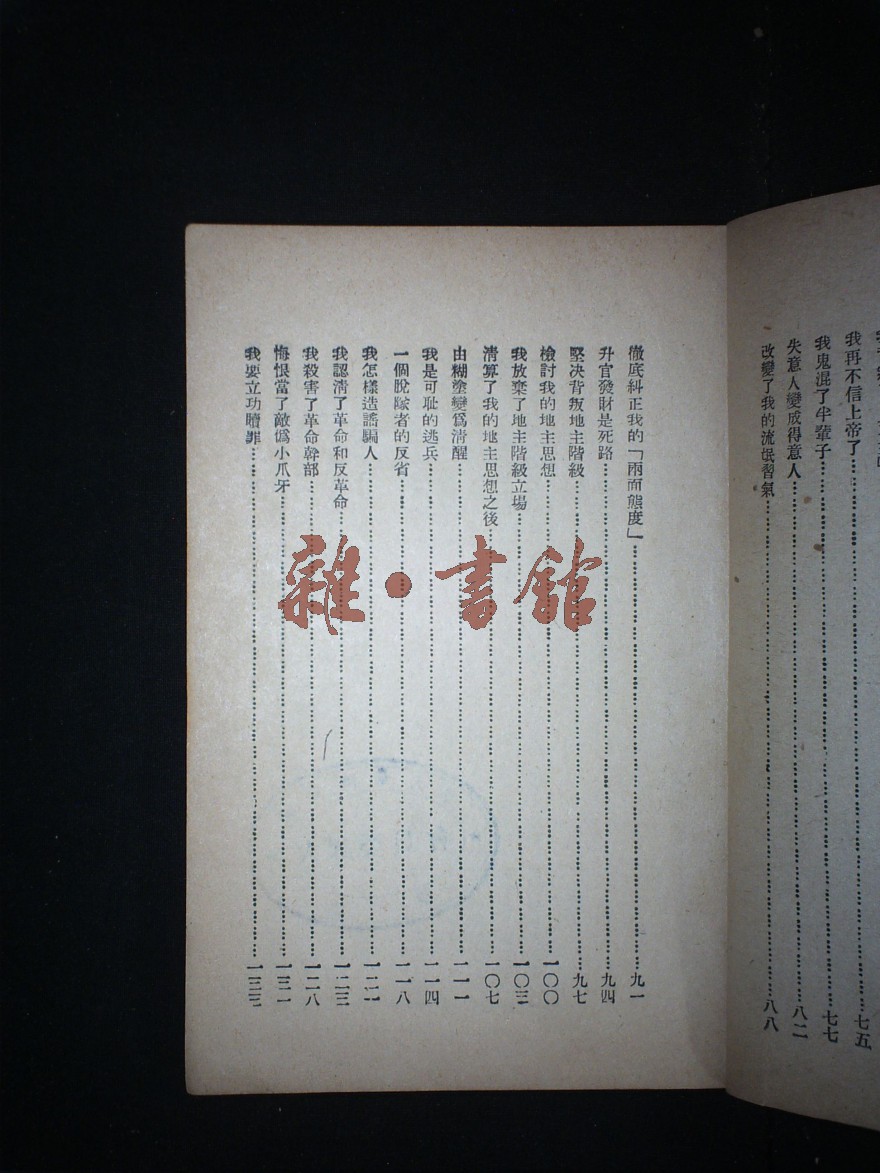 我再不信上帝了……七五
我鬼混了半輩子……七七
失意人變成得意人……八二
改變了我的流氓習氣……八八
徹底糾正我的「兩面態度」……九一
升官發財是死路……九四
堅决背叛地主階級……九七
檢討我的地主思想……一〇〇
我放棄了地主階級立場……一〇三
清算了我的地主思想之後……一〇七
由糊塗變爲清醒……一一一
我是可耻的逃兵……一一四
一個脫隊者的反省……一一八
我怎樣造謠騙人……一二一
我認清了革命和反革命……一二三
我殺害了革命幹部……一二八
悔恨當了敵僞小爪牙……一三一
我要立功贖罪……一三三
雜·書館